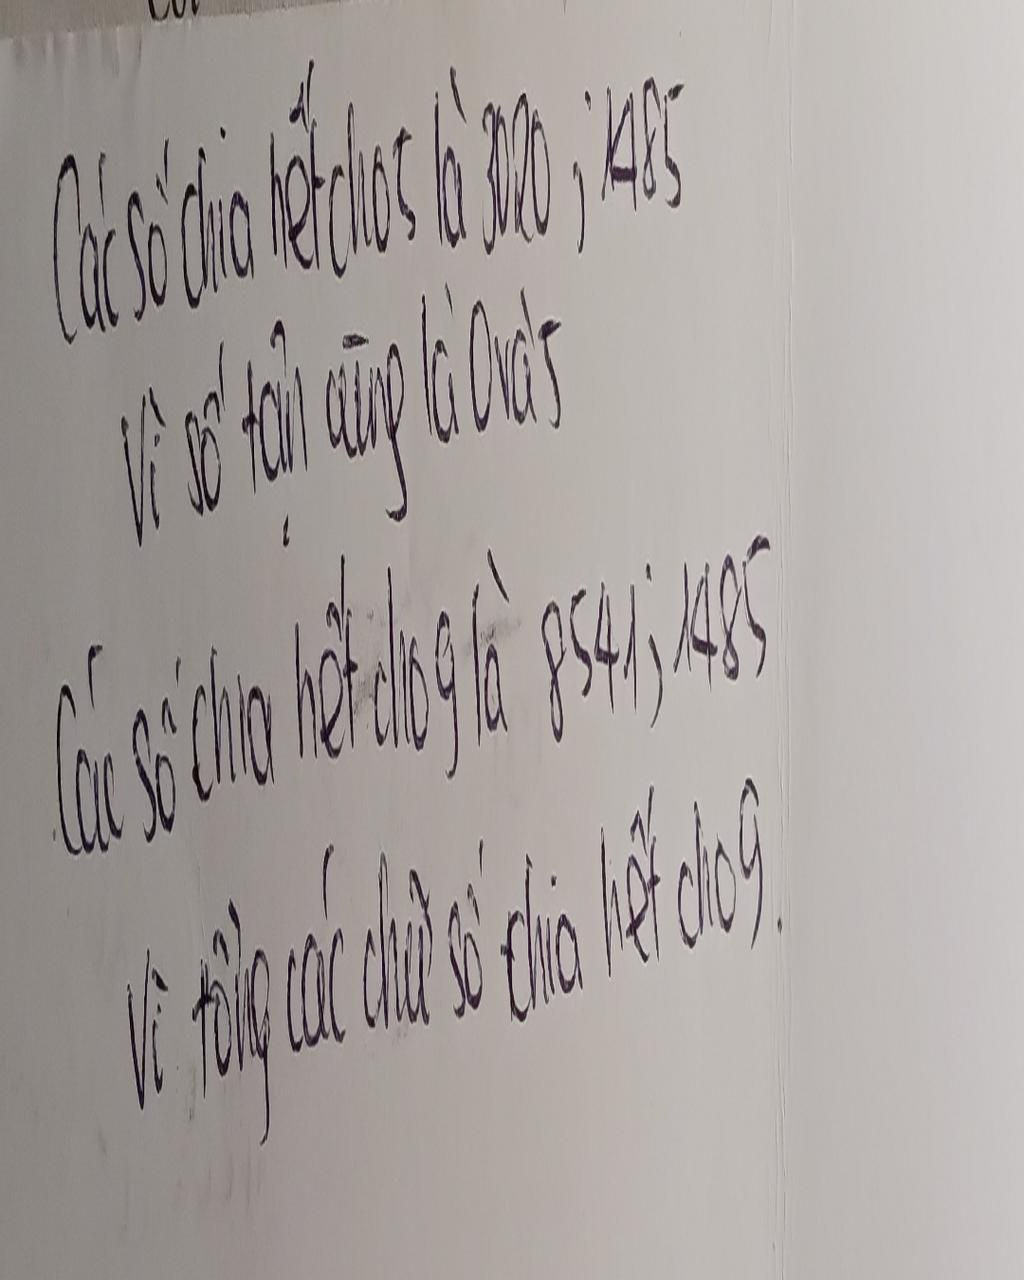 Các số chia hết cho 5 là 3020 ; 1485
Vì số tận cùng là 0 và 5
Các số chia hết cho 9 là 8541; 1485
Vì tổng các chữ số chia hết cho 9.